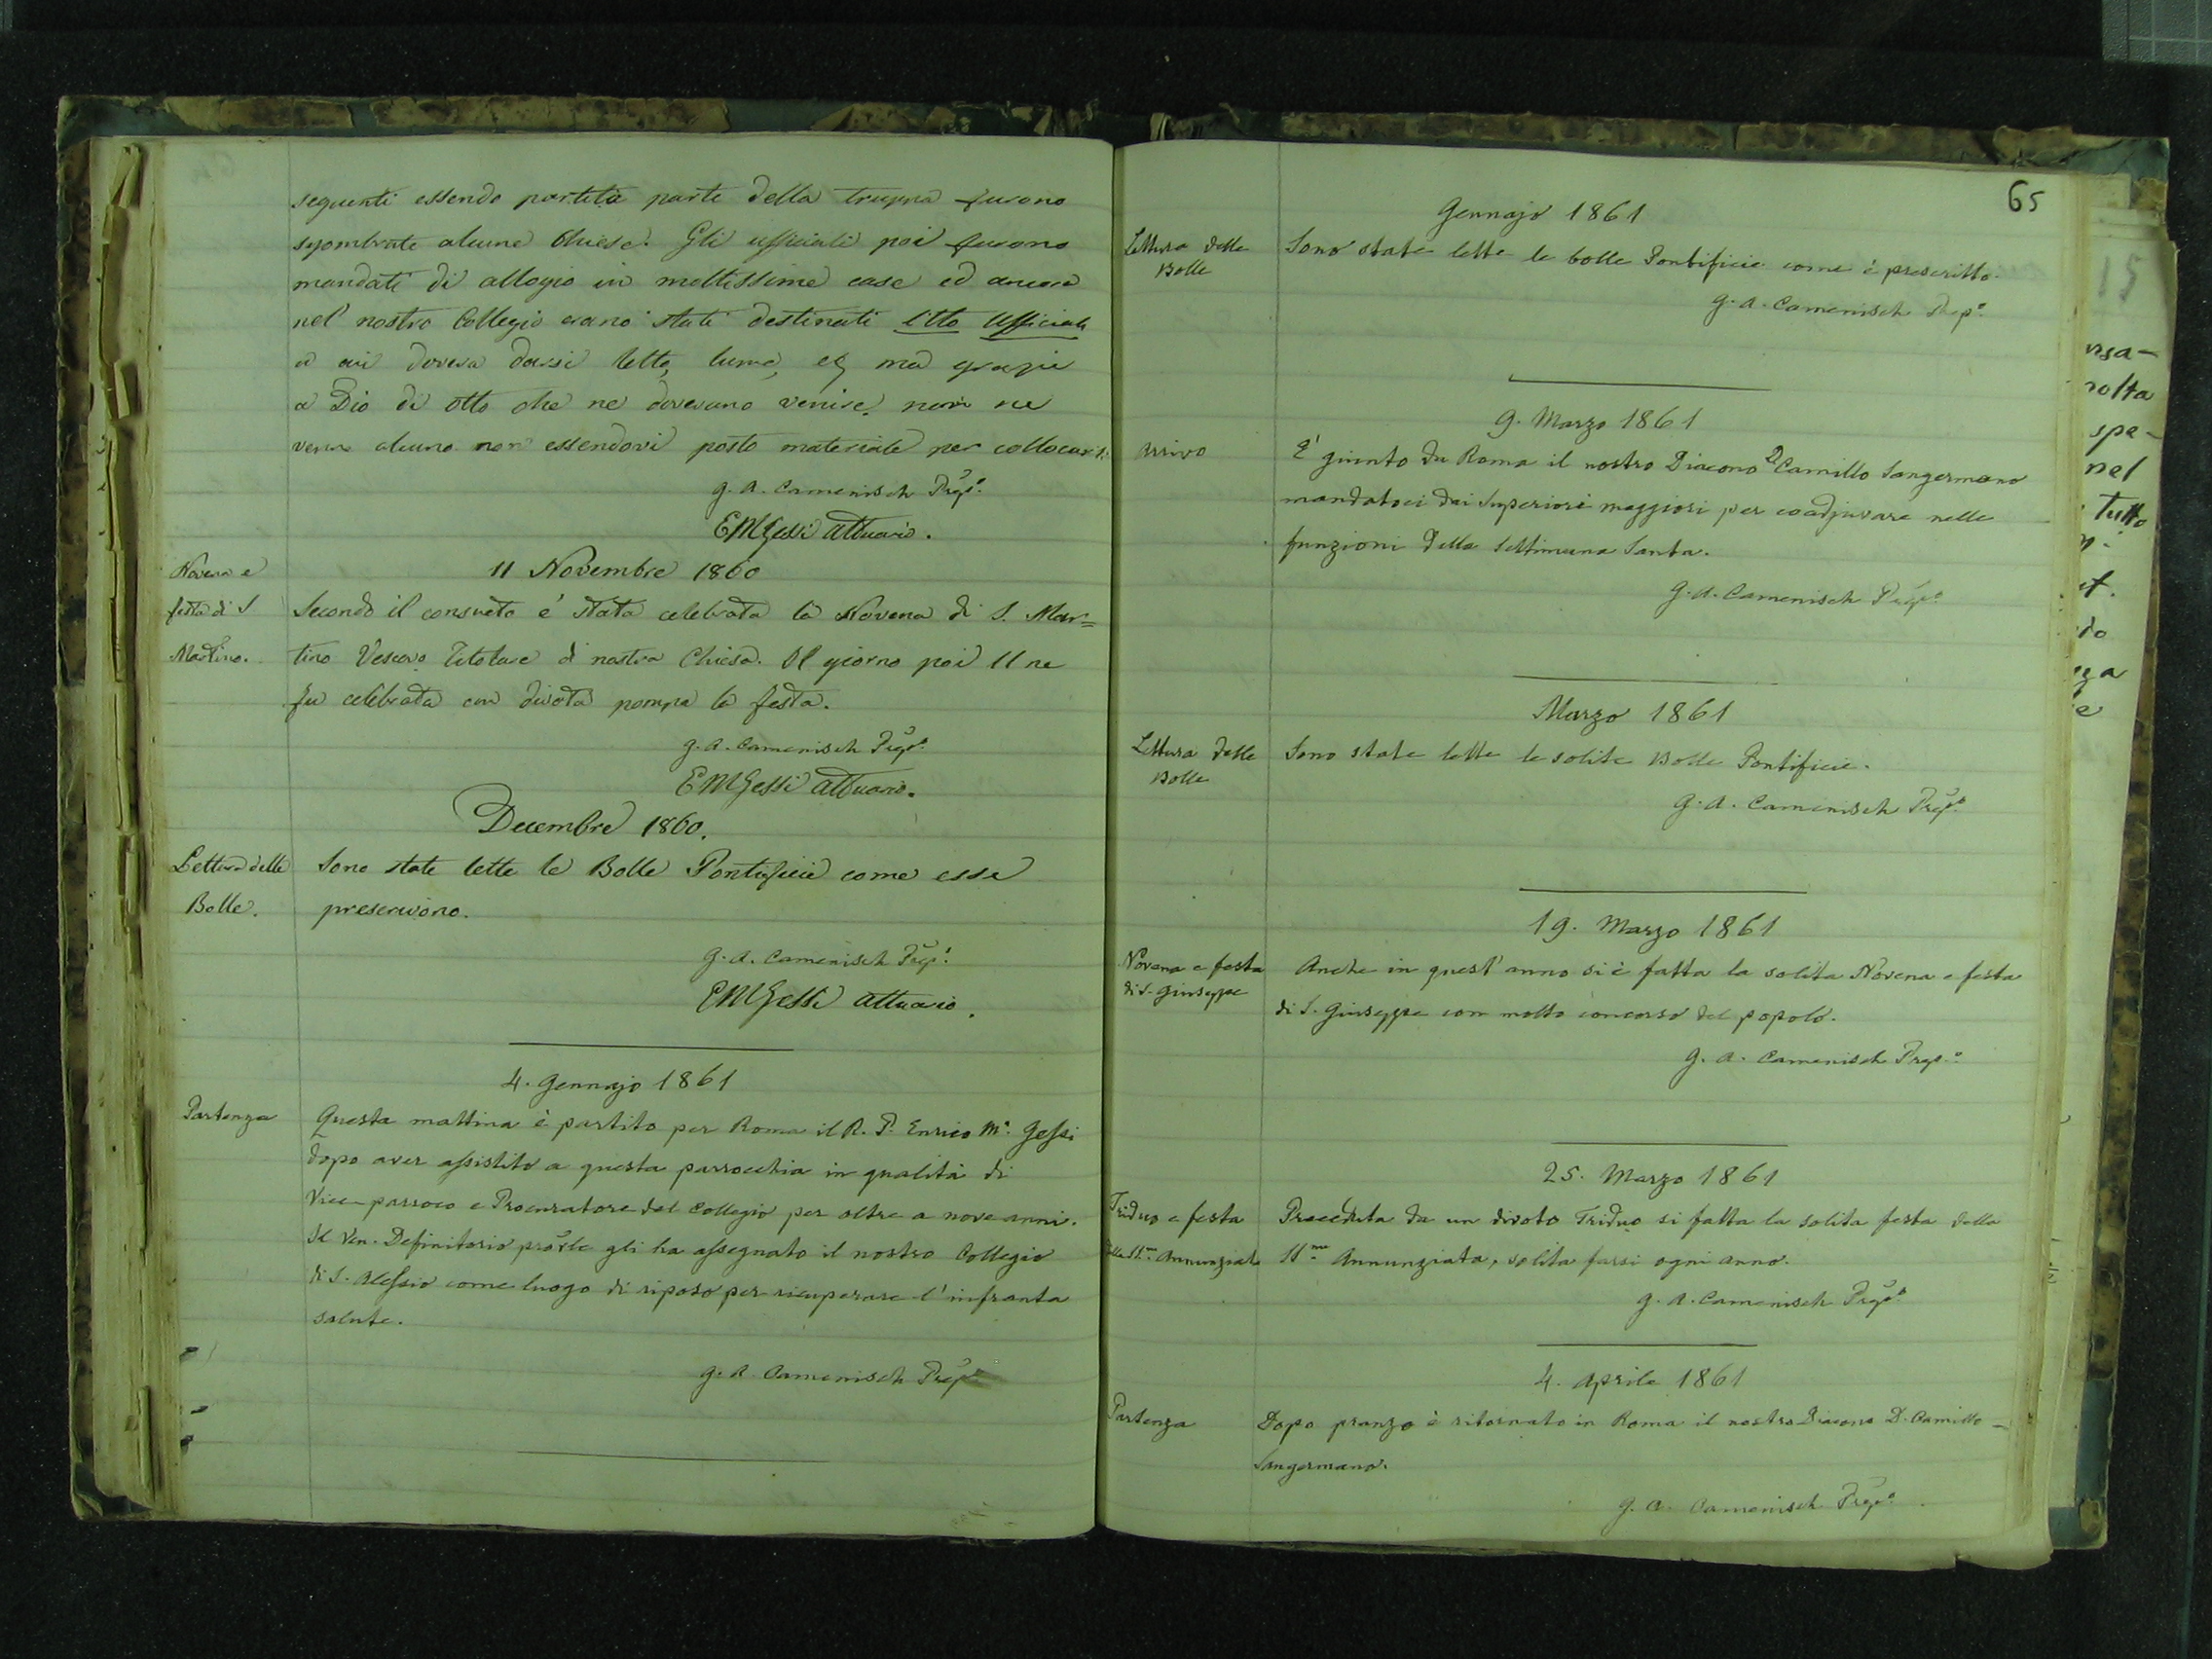 seguenti essendo partita parte della truppa furono
sgombrate alcune Chiese. Gli ufficiali poi furono
mandati di allogio in moltissime case ed ancora
nel nostro Collegio erano stati destinati otto Ufficiali
a cui doveva darsi letto, lume, ma grazie
a Dio di otto che ne dovevano venire, non ne
venne alcuno non essendovi posto materiale per collocarsi.
G. A. Camenisch Prepo.
EMGessi Attuario.
Novena e
festa di S
Martino.
11 Novembre 1860
Secondo il consueto è stata celebrata la Novena di S. Mar=
tino Vescovo Titolare di nostra Chiesa. Il giorno poi 11 ne
fu celebrata con divota pompa la festa.
G. A. Camenisch Prepo.
EMGessi Attuario.
Decembre 1860.
Lettura delle
Bolle.
Sono state lette le Bolle Pontificie come esse
prescrivono.
G. A. Camenisch Prepo.
EMGessi attuario.
4. Gennajo 1861
Partenza
Questa mattina è partito per Roma il R. P. Enrico Ma. Gessi
dopo aver assistito a questa parrocchia in qualità di
Vice-parroco e Procuratore del Collegio per oltre a nove anni.
Il Ven. Definitorio provle gli ha assegnato il nostro Collegio
di S. Alessio come luogo di riposo per ricuperare l'infranta
salute.
G. A. Camenisch Prepo
65
Gennajo 1861
Lettura delle
Bolle
Sono state lette le bolle Pontificie come è prescritto.
G. A. Camenisch Prepo.
9. Marzo 1861
Arrivo
E' giunto da Roma il nostro Diacono D Camillo Sangermano
mandatoci dai Superiori maggiori per coadjuvare nelle
funzioni della Settimana Santa.
G. A. Camenisch Prepo.
Marzo 1861
Lettura delle
Bolle
Sono state lette le solite Bolle Pontificie.
G. A. Camenisch Prepo.
19. Marzo 1861
Novena e festa
di S. Giuseppe
Anche in quest'anno si è fatta la solita Novena e festa
di S. Giuseppe con molto concorso del popolo.
G. A. Camenisch Prepo.
25. Marzo 1861
Triduo e festa
della SS.ma Annunziata
Preceduta da un divoto Triduo si fatta la solita festa della
SS.ma Annunziata, solita farsi ogni anno.
G. A. Camenisch Prepo.
4. Aprile 1861
Partenza
Dopo pranzo è ritornato in Roma il nostro Diacono D. Camillo
Sangermano.
G. A. Camenisch Prepo.
15
nel
tutto